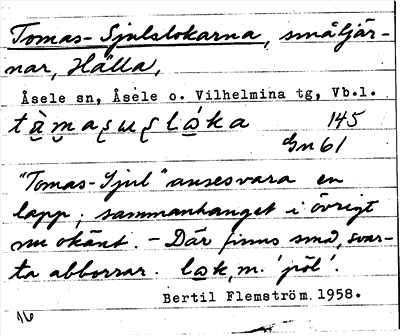 Tomas-Sjulslokarna, småtjär-
nar, Hälla,
Åsele sn, Åsele o. Vilhelmina tg, Vb.l.
145
Gn 61
"Tomas-Sjul" anses vara en
lapp; sammanhanget i övrigt
nu okänt. – Där finns små, svar-
ta abborrar. lok, m. 'pöl'.
Bertil Flemström 1958.
16